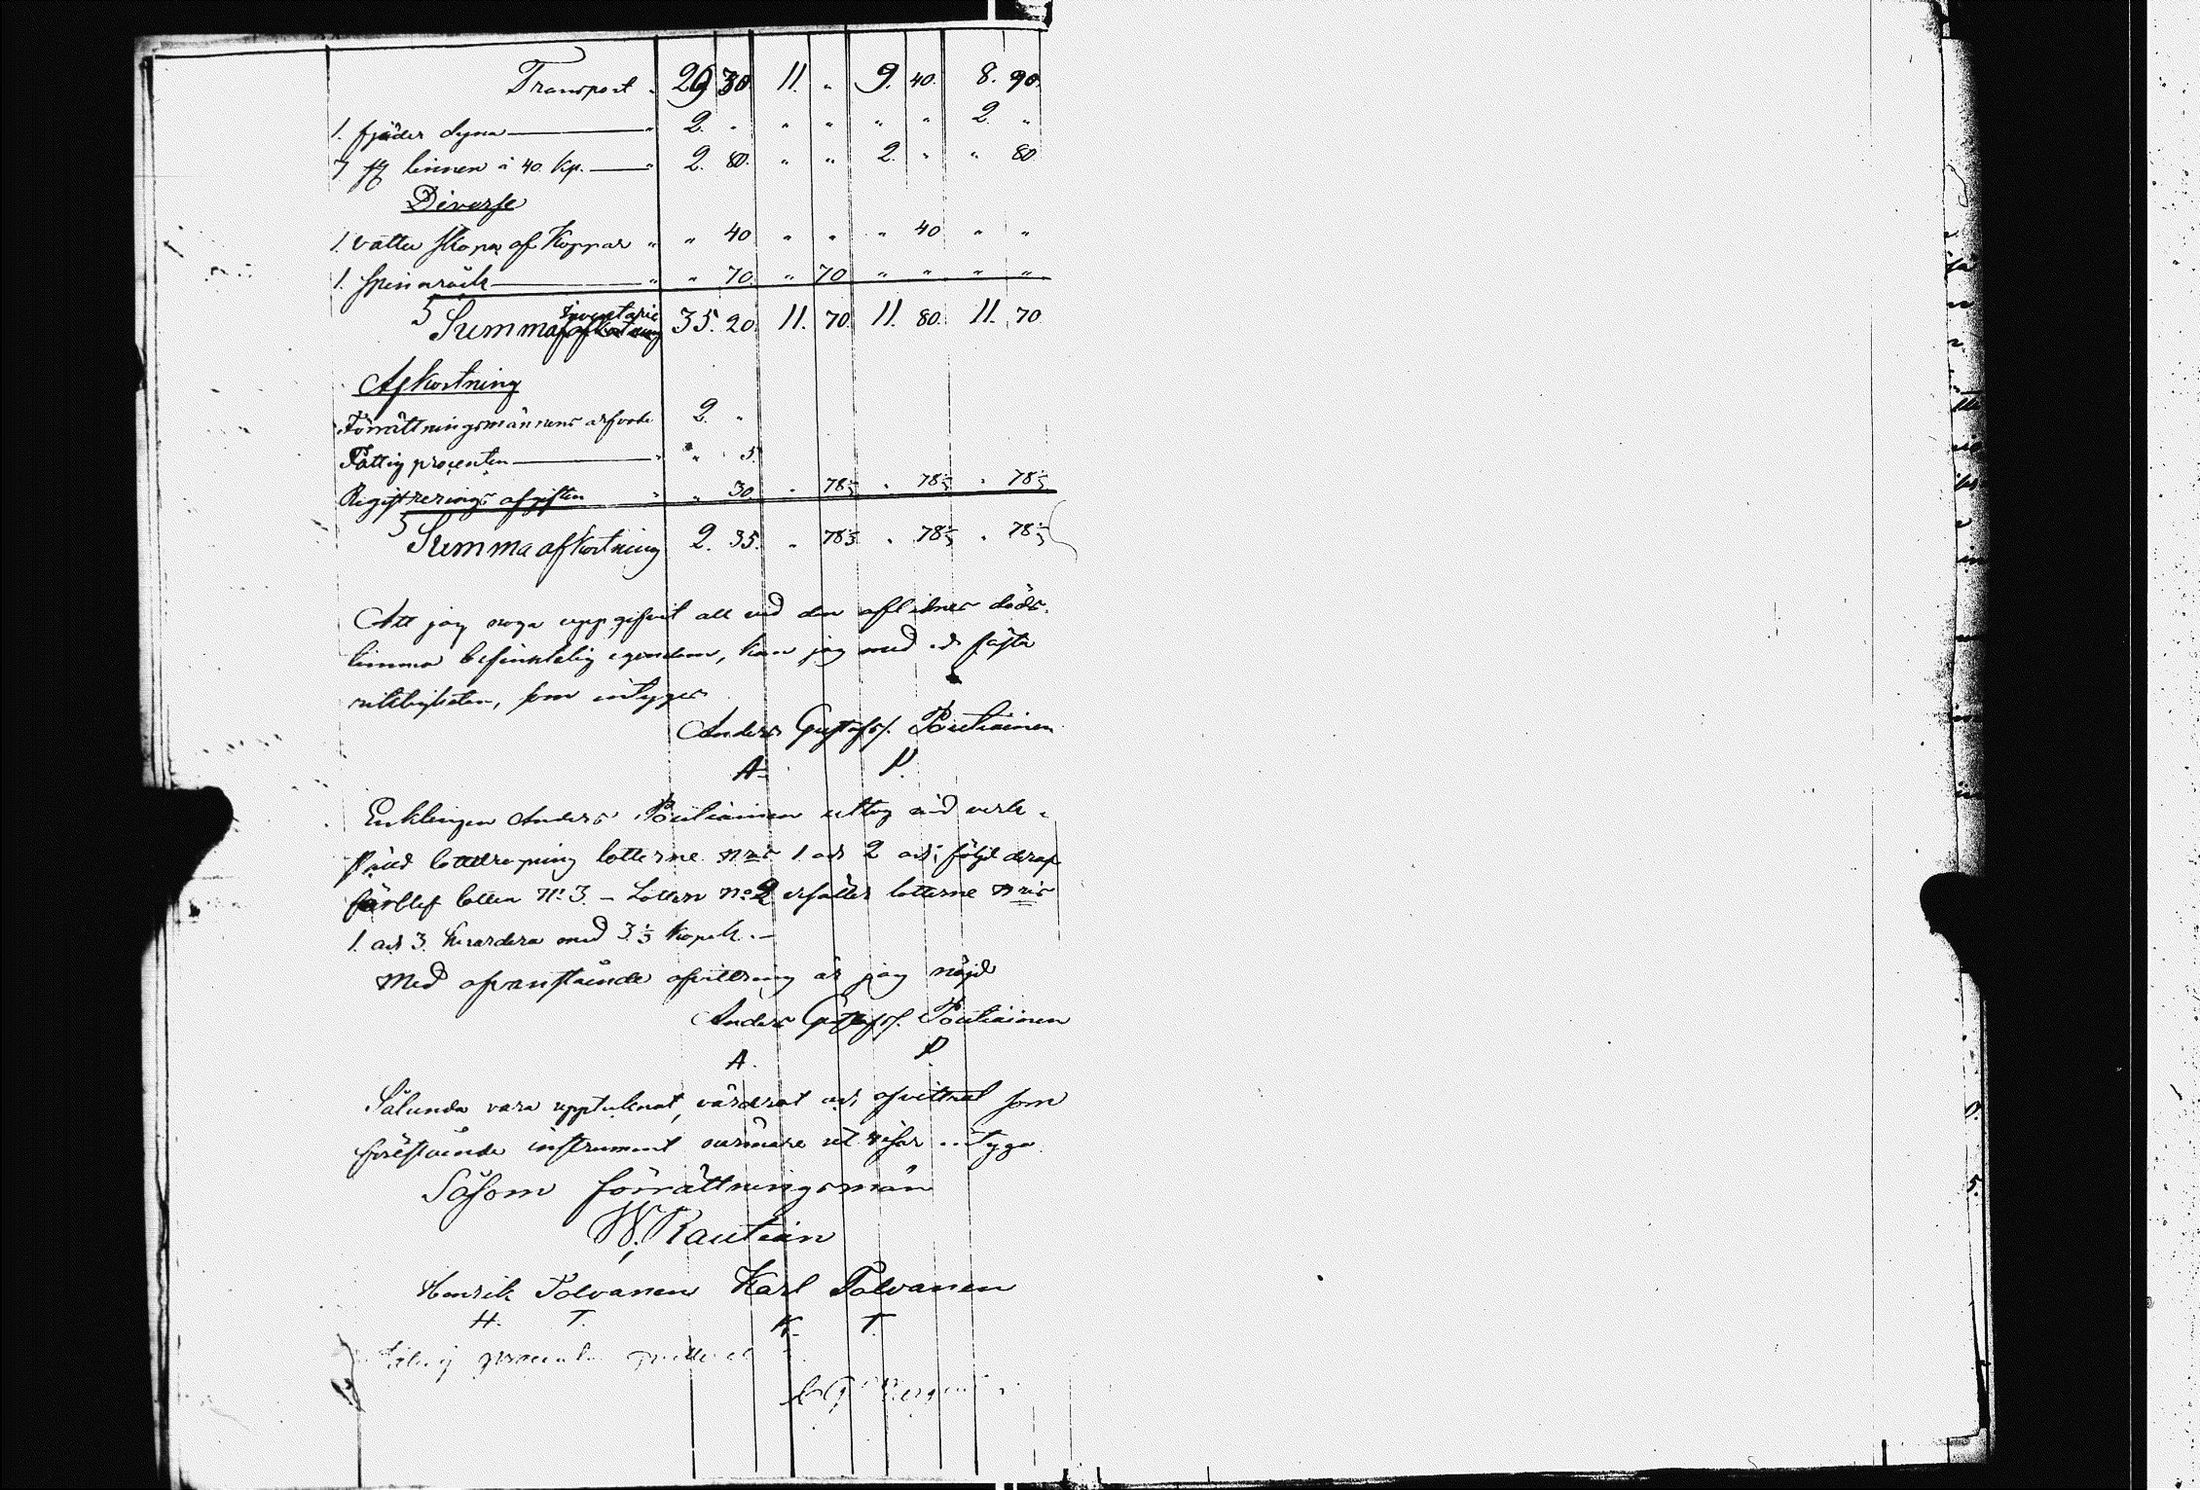 Transport " 29 30. 11. " 9. 40. 8. 90.
1. fjäder dyna " 2. " " " " " 2. "
7 ℔ linnen á 40. Kp. " 2. 80. " " 2. " " 80
Diverse
1. vatten skopa af Koppar " " 40 " " " 40 " "
1. spinnråck " " 70. " 70 " " " "
Summa Inventarie 35. 20. 11. 70. 11. 80. 11. 70
Afkortning
Förrättningsmännens arfvode 2. "
Fattig procenten " " 5.
Registrerings afgiften " " 30. " 78⅓ " 78⅓ " 78⅓
Summa afkortning 2. 35. " 78⅓ " 78⅓ " 78⅓
Att jag noga uppgifvit all vid den aflidnes döds-
timma befintelig egendom, kan jag med ed fästa
riktigheten, som intygas
Anders Gustafss. Poutiainen
A. P.
Enklingen Anders Poutiainen uttog vid verk-
stäld lottdragning lotterne N:ris 1 och 2 och i följd deraf
förblef lotten N:o 3. – Lotten N:o 2 erfäller lotterne N:ris
1. och 3. hvardera med 3⅓ kopek. –
Med ofvanstående afvittring är jag nöjd
Anders Gustafss. Poutiainen
A. P.
Sålunda vara upptecknat, värderat och afvittrat som
förestående instrument närmare utvisar intyga.
Såsom förrättningsmän
W. Rautiain
Henrik Tolvanen Karl Tolvanen
H. T. K. T.